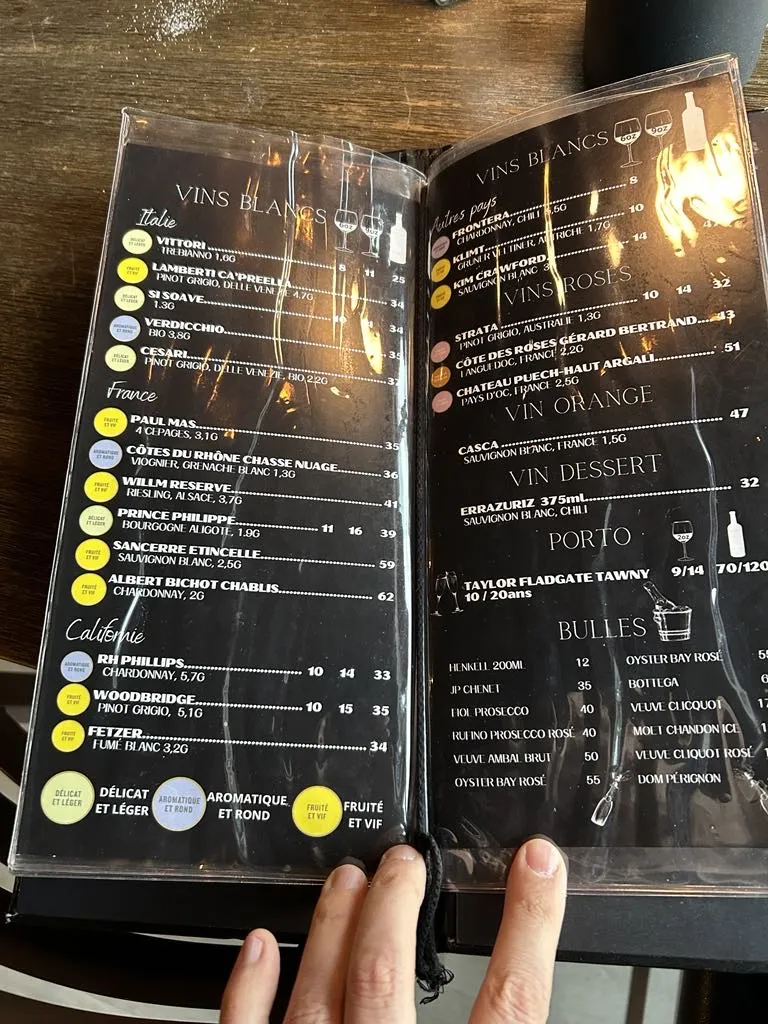 VINS BLANCS
6OZ 9OZ
Italie
DÉLICAT ET LÉGER VITTORI 8 11 25
TREBIANNO 1,6G
FRUITÉ ET VIF LAMBERTI CA'PREELLA 34
PINOT GRIGIO, DELLE VENEZIE 4.7G
DÉLICAT ET LÉGER SI SOAVE 34
1.3G
AROMATIQUE ET ROND VERDICCHIO 35
BIO 3,8G
DÉLICAT ET LÉGER CESARI 37
PINOT GRIGIO, DELLE VENEZIE, BIO 2,2G
France
FRUITÉ ET VIF PAUL MAS 35
4 CEPAGES, 3,1G
AROMATIQUE ET ROND CÔTES DU RHÔNE CHASSE NUAGE 36
VIOGNIER, GRENACHE BLANC 1,3G
FRUITÉ ET VIF WILLM RESERVE 41
RIESLING, ALSACE, 3,7G
DÉLICAT ET LÉGER PRINCE PHILIPPE 11 16 39
BOURGOGNE ALIGOTE, 1.9G
FRUITÉ ET VIF SANCERRE ETINCELLE 59
SAUVIGNON BLANC, 2,5G
FRUITÉ ET VIF ALBERT BICHOT CHABLIS 62
CHARDONNAY, 2G
Californie
AROMATIQUE ET ROND RH PHILLIPS 10 14 33
CHARDONNAY, 5,7G
FRUITÉ ET VIF WOODBRIDGE 10 15 35
PINOT GRIGIO, 5,1G
FRUITÉ ET VIF FETZER 34
FUMÉ BLANC 3,2G
DÉLICAT ET LÉGER DÉLICAT ET LÉGER
AROMATIQUE ET ROND AROMATIQUE ET ROND
FRUITÉ ET VIF FRUITÉ ET VIF
VINS BLANCS
6OZ 9OZ
Autres pays
FRONTERA 8
CHARDONNAY, CHILI
KLIMT 10
GRUNER VELTLINER, AUTRICHE 1.7G
KIM CRAWFORD 14
SAUVIGNON BLANC
VINS ROSÉS
STRATA 10 14 32
PINOT GRIGIO, AUSTRALIE 1,3G
CÔTE DES ROSES GÉRARD BERTRAND 43
LANGUEDOC, FRANCE 2,2G
CHATEAU PUECH-HAUT ARGALI 51
PAYS D'OC, FRANCE 2,5G
VIN ORANGE
CASCA 47
SAUVIGNON BLANC, FRANCE 1,5G
VIN DESSERT
ERRAZURIZ 375mL 32
SAUVIGNON BLANC, CHILI
PORTO
2OZ
TAYLOR FLADGATE TAWNY 9/14 70/120
10 / 20ans
BULLES
HENKELL 200ML 12
JP CHENET 35
FIOL PROSECCO 40
RUFINO PROSECCO ROSÉ 40
VEUVE AMBAL BRUT 50
OYSTER BAY ROSÉ 55
OYSTER BAY ROSÉ
BOTTEGA
VEUVE CLICQUOT
MOET CHANDON ICE
VEUVE CLIQUOT ROSÉ
DOM PÉRIGNON